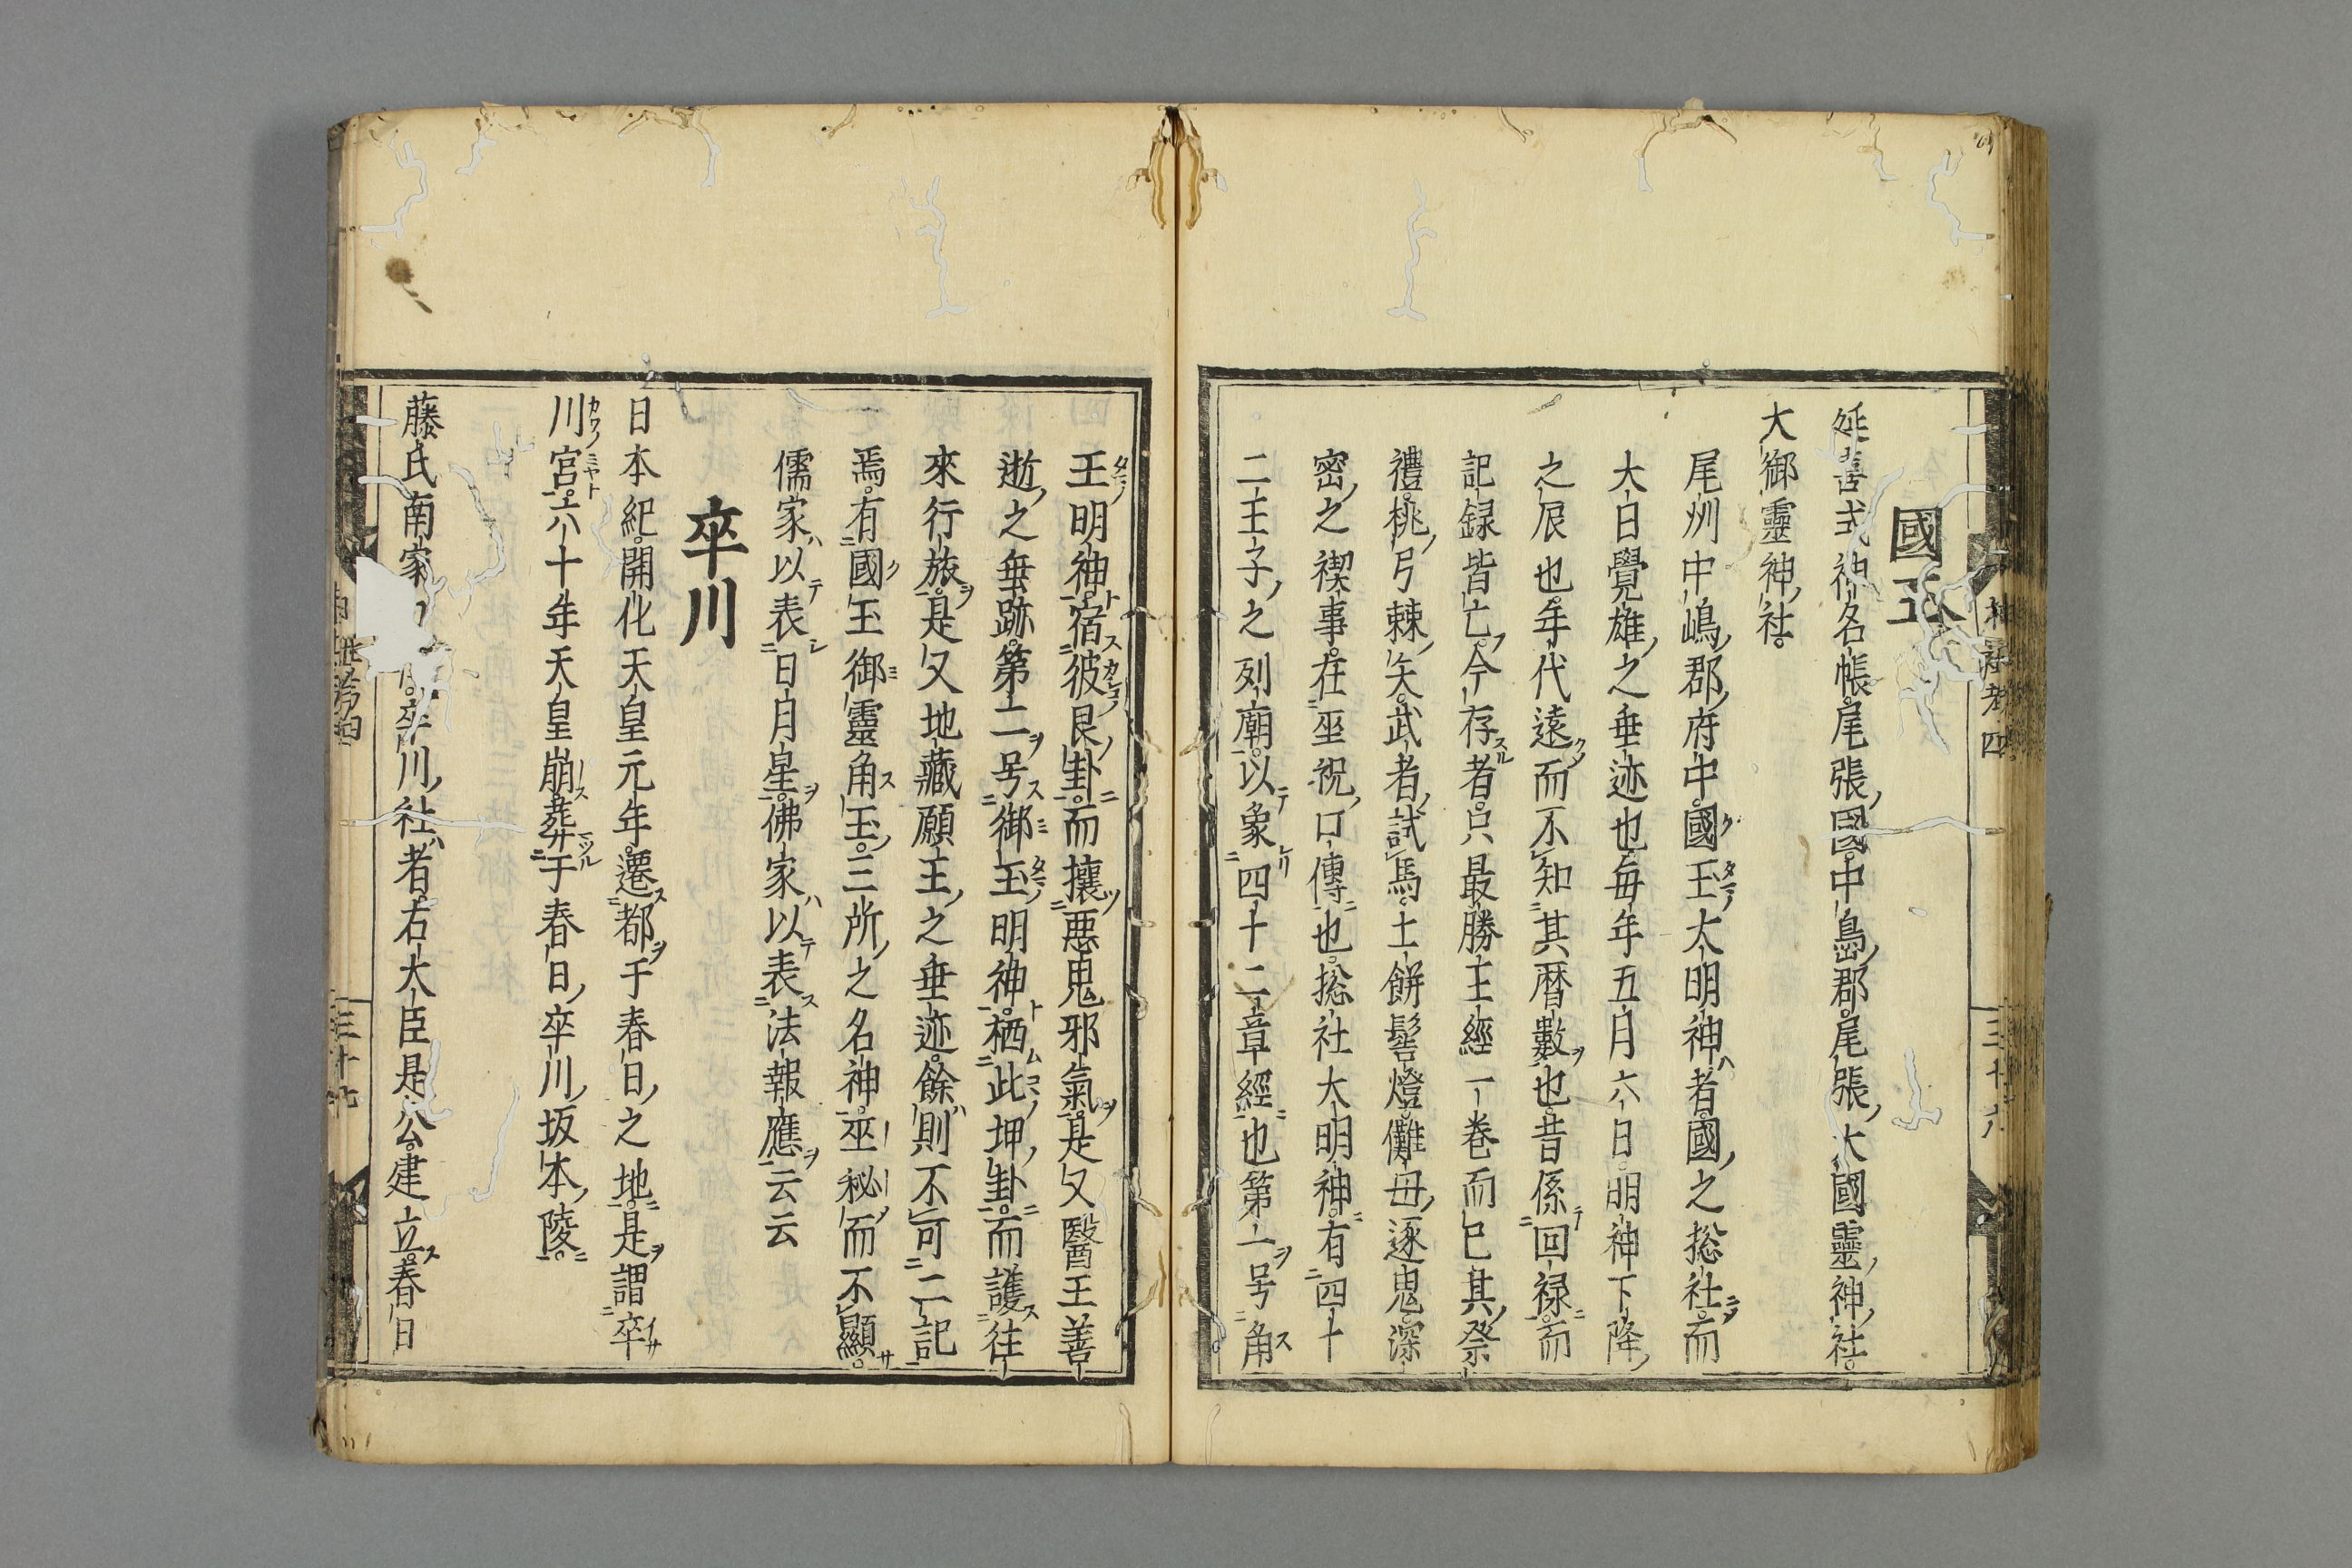 國玉
延喜式神名帳尾張國中島郡尾張大國靈神社
大御靈神社
尾州中嶋郡府中國玉大明神者國之捴社而
大日覺雄之垂迹也每年五月六日明神下降
之辰也年代遠而不知其暦數也昔係回禄而
記録皆亡今存者只最勝王經一巻而已其祭
禮桃弓棘矢武者試馬土餅髻燈儺毋逐鬼深
密之禊事在巫祝口傳也捴社大明神有四十
二王子之列廟以象四十二章經也第一号角
玉明神宿彼艮卦而攘悪鬼邪氣是又醫王善
逝之垂跡第二号御玉明神栖此坤卦而護往
來行旅是又地藏願王之垂迹餘則不可二記
焉有國玉御靈角玉三所之名神巫秘而不顯
儒家以表日月星佛家以表法報應云云
卒川
日本紀開化天皇元年遷都于春日之地是謂卒
川宮六十年天皇崩葬于春日卒川坂本陵
藤氏南家卒川社者右大臣是公建立春日
神社考四
三十六
三十七